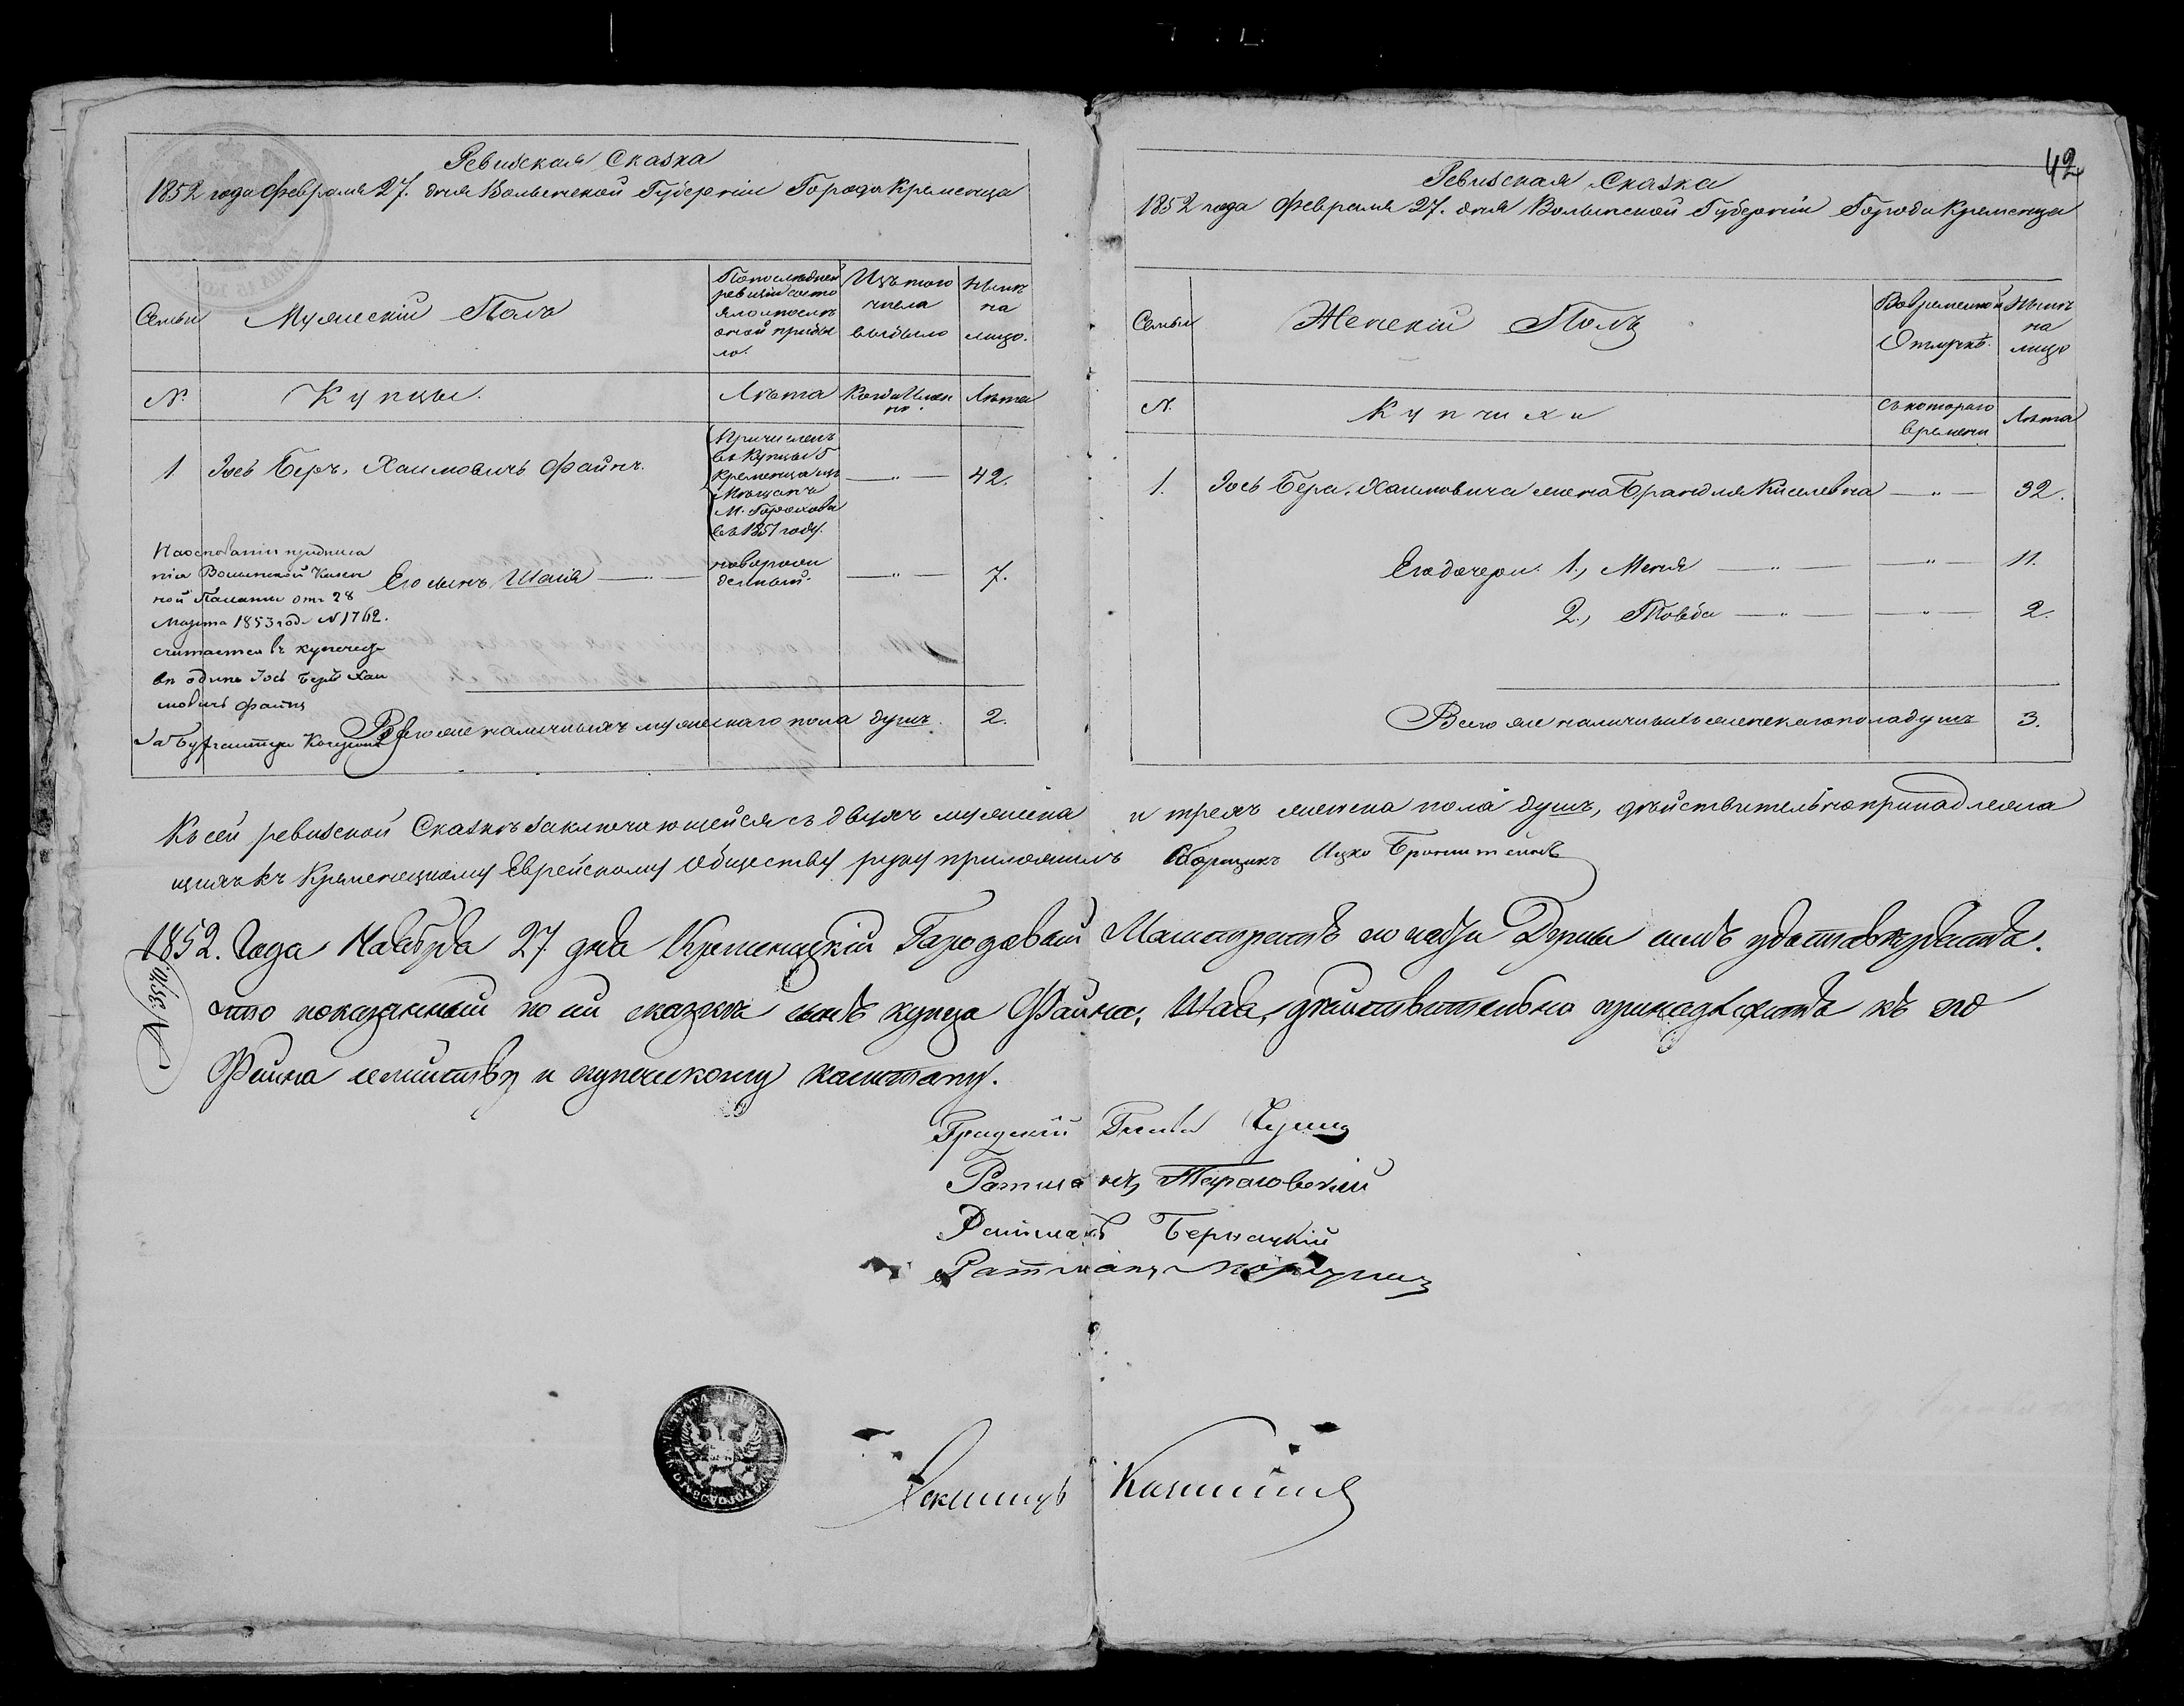 Ревизская Сказка
1852 года Февраля 27. дня Волынской Губернiи Города Кременца
Семьи
Мужескiй Полъ
По последней
ревизiи состо
яло и после
оной прибы
ло.
Изъ того
числа
выбыло
Ныне
на
лицо.
N.
Купцы.
Лета
Когда Имен
но.
Лета
1
Iось Беръ, Хаимовичъ Файнъ.
Причисленъ
въ Купцы Г
Кременца изъ
Мещанъ
М. Горохова
въ 1851 году.
42.
Его сынъ Шаiя
новорож
денный.
7.
На основанiи предписа
нiя Волынской Казен
ной Палаты отъ 28
Марта 1853 год. N 1762.
считается въ купечест
ве одинъ Iось Беръ Хаи
мовичъ Файнъ
За Бухгалтера
Всего же наличныхъ мужескаго пола душъ.
2.
42
Ревизская Сказка
1852 года Февраля 27. дня Волынской Губернiи Города Кременца
Семьи
Женскiй Полъ
Во временной
Отлучке.
Ныне
на
лицо
N.
Купчихи
Съ котораго
времени
Лета
1.
Iось Бера, Хаимовича жена Брандля Киселевна
32.
Его дочери. 1., Меня
11.
2., Товба
2.
Всего же наличныхъ женскаго пола душъ
3.
Къ сей ревизской Сказке заключающейся съ двухъ мужеска и трехъ женска пола душъ, действительно принадлежа
щихъ къ Кременецкому Еврейскому Обществу руку приложилъ Сборщикъ Ицко Бронштейнъ
1852. Года Ноября 27 дня Кременецкiй Городовый Магистратъ и Думы симъ удостоверяетъ.
что показанный по сей сказке сынъ купца Файна, Шая, действительно принадлежитъ къ его
Файна семейству и купеческому капиталу.
N 3571
Градскiй Глава
Ратманъ
Ратманъ Бернацкiй
Ратманъ